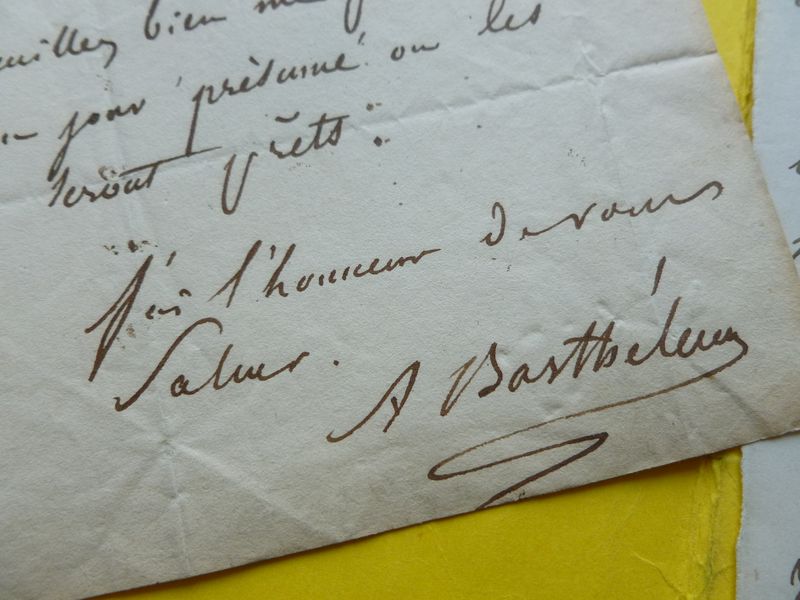 veuillez bien me
jour présumé ou les
seront prêts.
J'ai l'honneur de vous
Saluer.
A Barthélemy